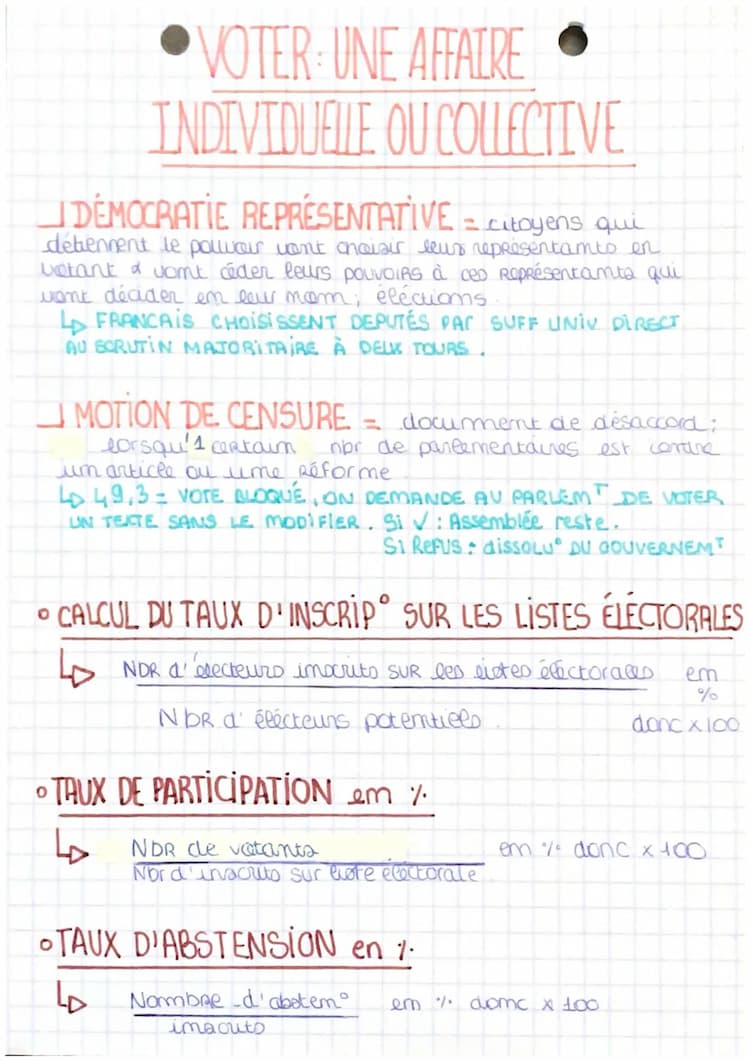 VOTER : UNE AFFAIRE
INDIVIDUELLE OU COLLECTIVE
DÉMOCRATIE REPRÉSENTATIVE = citoyens qui
détiennent le pouvoir vont choisir leurs représentants en
votant & vont céder leurs pouvoirs à ces représentants qui
vont décider en leur nom ; éléctions.
↳ FRANCAIS CHOISISSENT DEPUTÉS PAr SUFF UNIV DIRECT
AU SCRUTIN MAJORITAIRE À DEUX TOURS.
MOTION DE CENSURE = documment de désaccord ;
lorsqu'1 certain nbr de parlementaires est contre
um article ou une Réforme
↳ 49,3 = VOTE BLOQUÉ, ON DEMANDE AU PARLEMT DE VOTER
UN TEXTE SANS LE MODIFIER. Si ✓ : Assemblée reste.
Si REFUS : dissolu° DU GOUVERNEMT
° CALCUL DU TAUX D'INSCRIP° SUR LES LISTES ÉLÉCTORALES
↳ NBR d'électeurs inscrits SUR les listes éléctorales en
%
NbR d'élécteurs potentiels. donc x100
° TAUX DE PARTICIPATION em %.
↳ NBR de votants em % donc x 100
Nbr d'inscrits sur liste éléctorale
° TAUX D'ABSTENSION en %.
↳ Nombre d'absten° em % donc x 100
inscrits